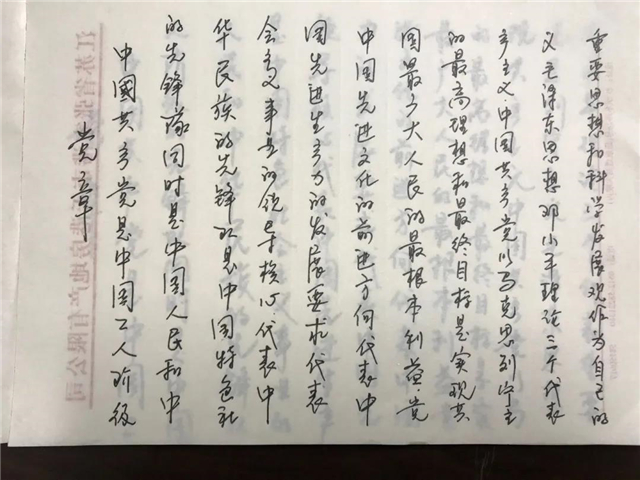 党章
中國共产党是中国工人阶级
的先鋒隊同时是中国人民和中
华民族的先鋒队是中国特色社
会主义事业的领导核心.代表中
国先进生产力的发展要求代表
中国先进文化的前进方向代表中
国最广大人民的最根本利益.党
的最高理想和最终目标是实现共
产主义.中国共产党以马克思列宁主
义毛泽东思想邓小平理论三个代表
重要思想和科学发展观作为自己的